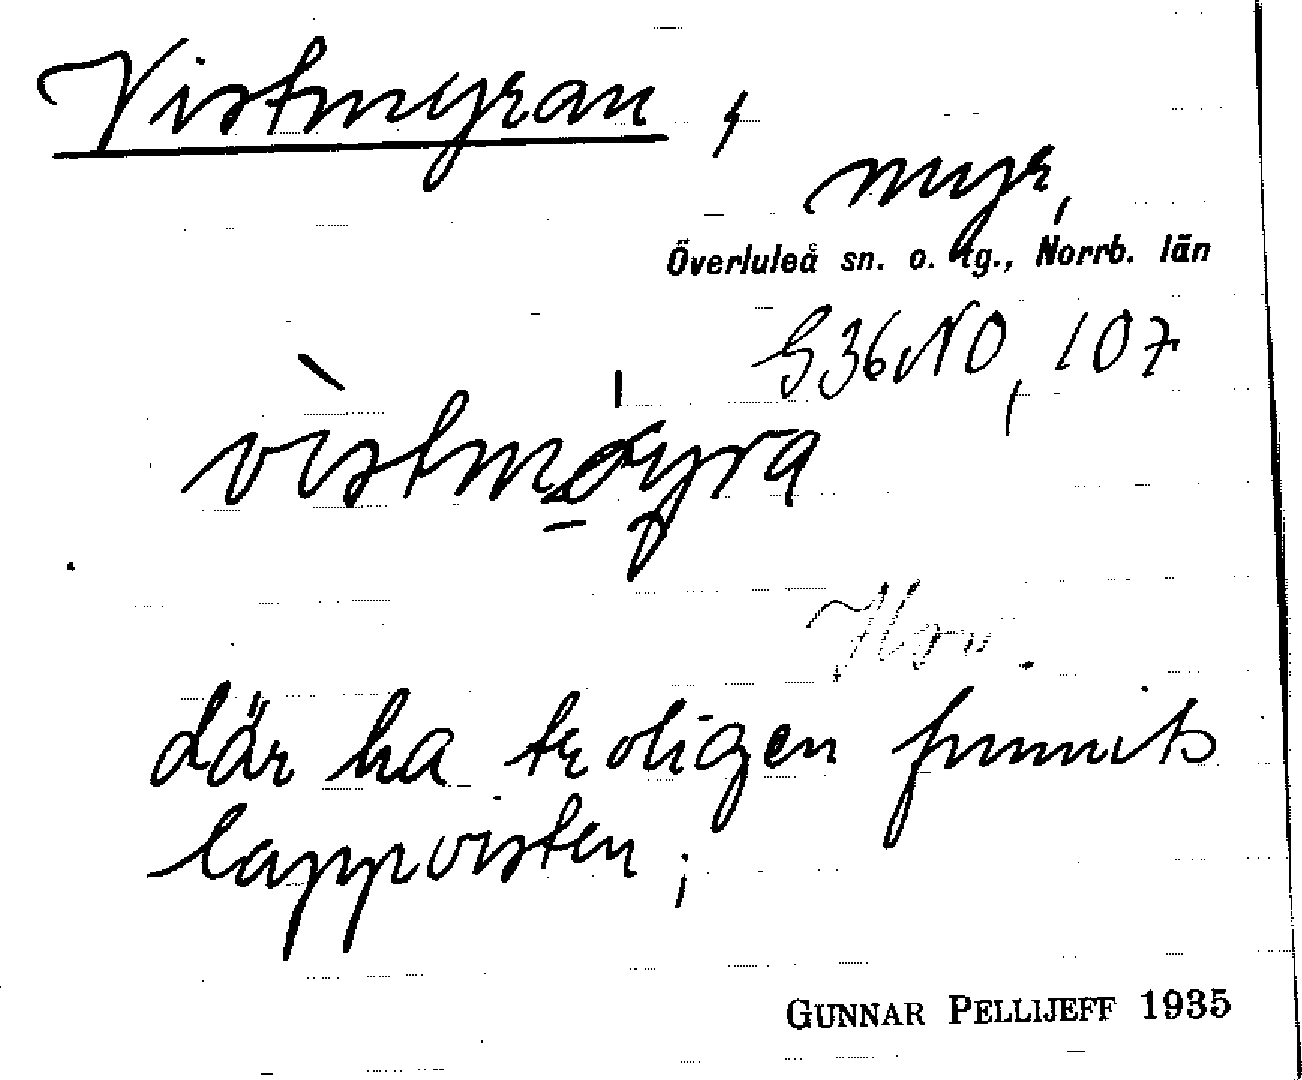 Vistmyran,
myr,
Överluleå sn. o. tg., Norrb. län
G36NO, 107
vìstmøyra
där ha troligen funnits
lappvisten;
GUNNAR PELLIJEFF 1935